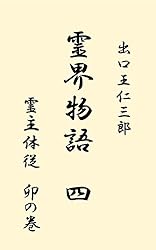 出口王仁三郎
霊界物語　四
霊主体従　卯の巻